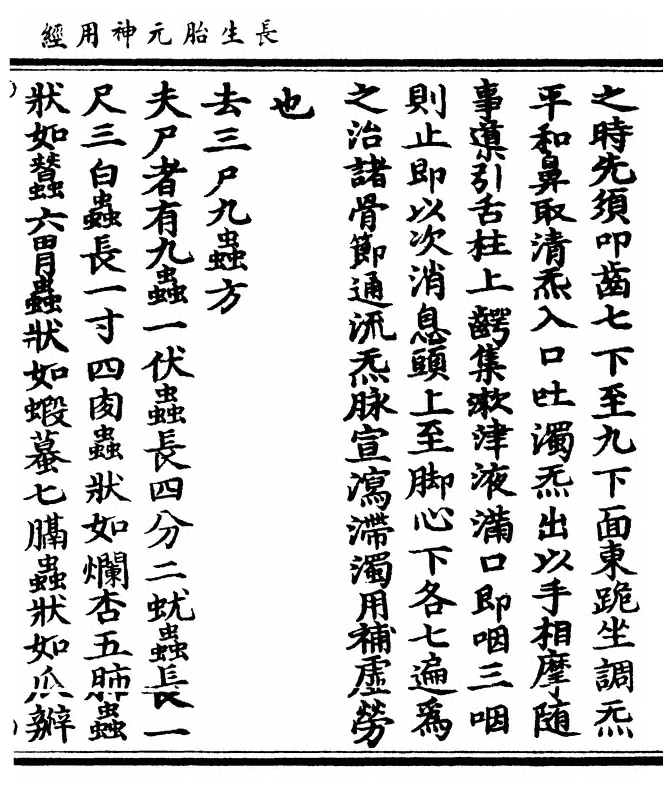 長生胎元神用經
之時先須叩齒七下至九下面東跪坐調炁
平和鼻取清炁入口吐濁炁出以手相摩隨
事導引舌柱上齶集漱津液滿口即咽三咽
則止即以次消息頭上至脚心下各七遍爲
之治諸骨節通流炁脉宣瀉滯濁用補虛勞
也
去三尸九蟲方
夫尸者有九蟲一伏蟲長四分二蚘蟲長一
尺三白蟲長一寸四肉蟲狀如爛杏五肺蟲
狀如蠶六胃蟲狀如蝦蟇七膈蟲狀如瓜辦